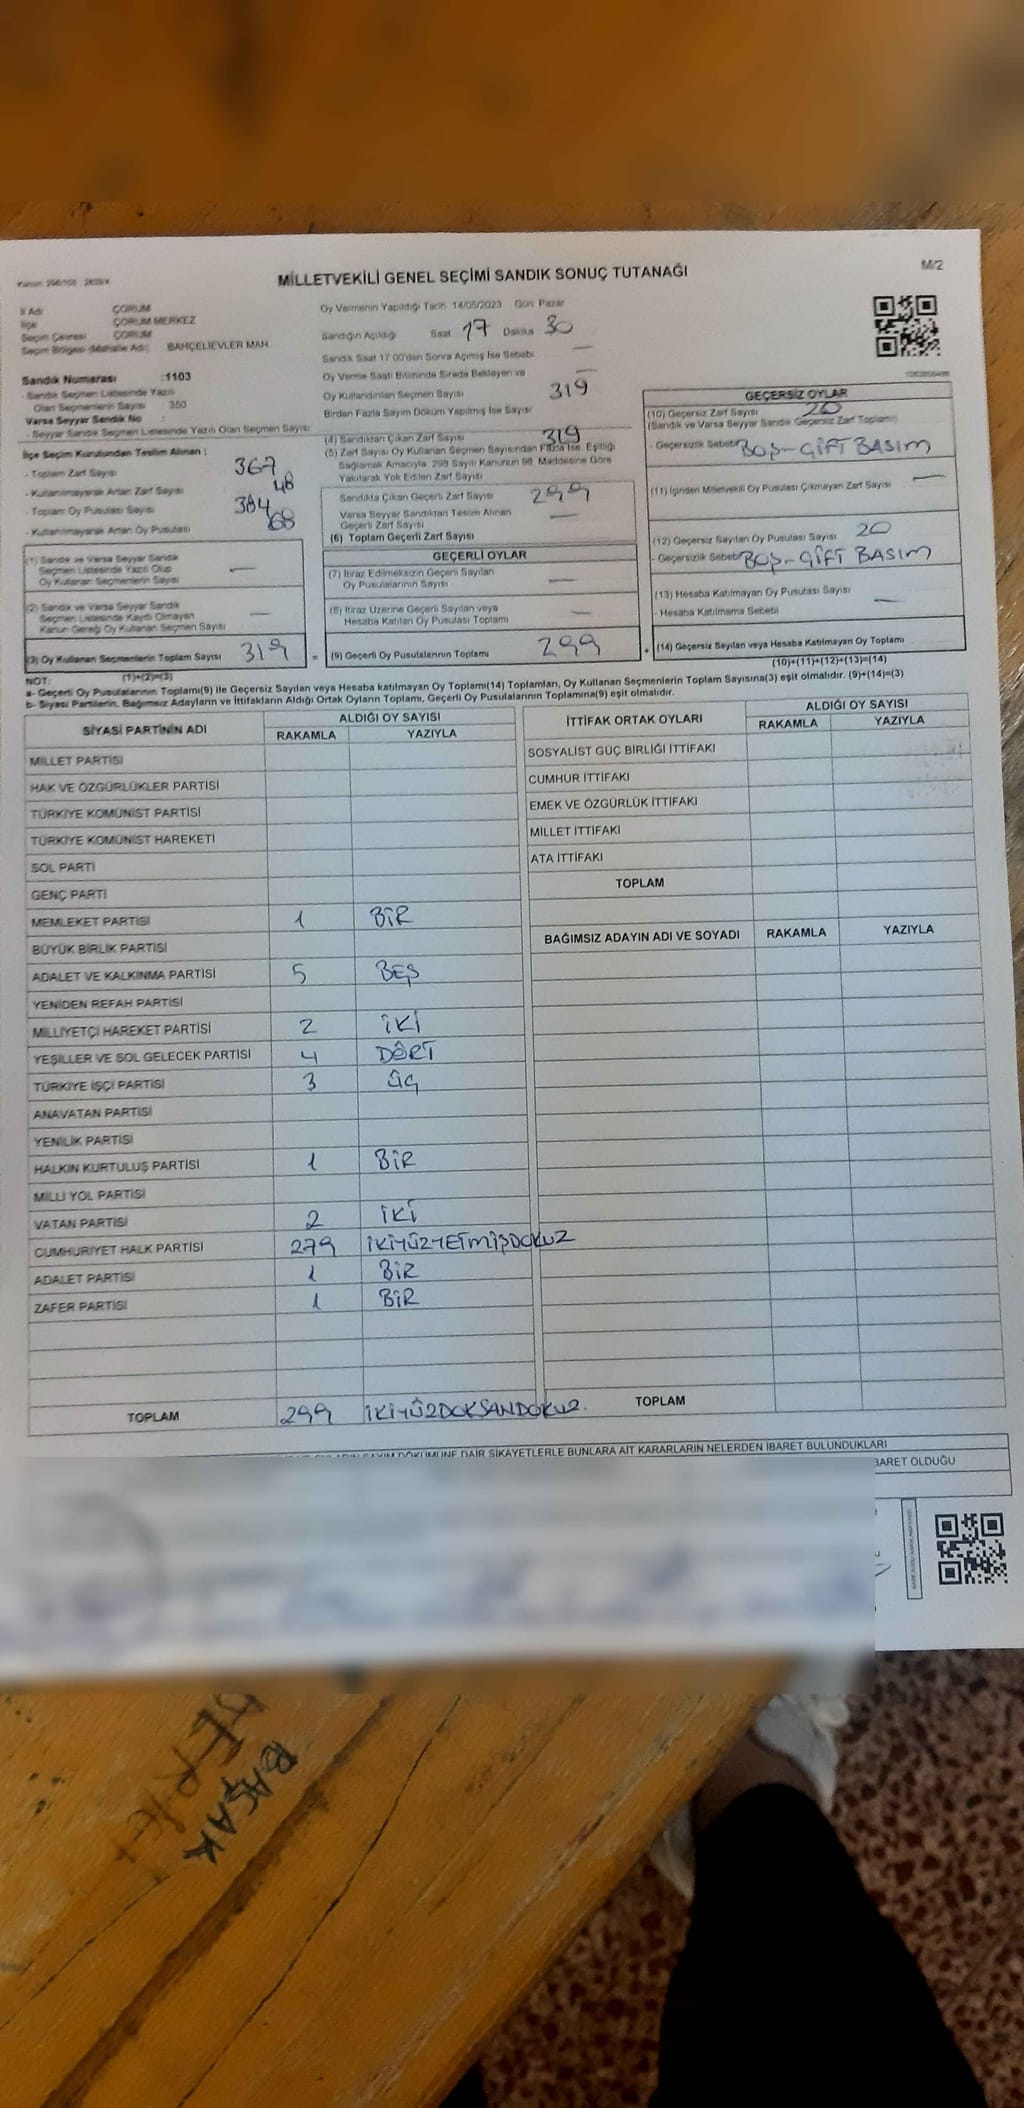 MİLLETVEKİLİ GENEL SEÇİMİ SANDIK SONUÇ TUTANAĞI
M/2
İl Adı ÇORUM
İlçe ÇORUM MERKEZ
Seçim Çevresi ÇORUM
Seçim Bölgesi (Mahalle Adı) BAHÇELİEVLER MAH.
Sandık Numarası :1103
- Sandık Seçmen Listesinde Yazılı
Olan Seçmenlerin Sayısı : 350
Varsa Seyyar Sandık No :
- Seyyar Sandık Seçmen Listesinde Yazılı Olan Seçmen Sayısı :
İlçe Seçim Kurulundan Teslim Alınan :
- Toplam Zarf Sayısı 367
- Kullanılmayarak Artan Zarf Sayısı 48
- Toplam Oy Pusulası Sayısı 384
- Kullanılmayarak Artan Oy Pusulası 68
(1) Sandık ve Varsa Seyyar Sandık
Seçmen Listesinde Yazılı Olup
Oy Kullanan Seçmenlerin Sayısı —
(2) Sandık ve Varsa Seyyar Sandık
Seçmen Listesinde Kayıtlı Olmayan
Kanun Gereği Oy Kullanan Seçmen Sayısı —
(3) Oy Kullanan Seçmenlerin Toplam Sayısı 319
(1)+(2)=(3)
Oy Vermenin Yapıldığı Tarih 14/05/2023 Gün Pazar
Sandığın Açıldığı Saat 17 Dakika 30
Sandık Saat 17.00'den Sonra Açılmış İse Sebebi —
Oy Verme Saati Bitiminde Sırada Bekleyen ve —
Oy Kullandırılan Seçmen Sayısı 319
Birden Fazla Sayım Döküm Yapılmış İse Sayısı
(4) Sandıktan Çıkan Zarf Sayısı 319
(5) Zarf Sayısı Oy Kullanan Seçmen Sayısından Fazla İse, Eşitliği
Sağlamak Amacıyla, 298 Sayılı Kanunun 98. Maddesine Göre
Yakılarak Yok Edilen Zarf Sayısı
Sandıkta Çıkan Geçerli Zarf Sayısı 299
Varsa Seyyar Sandıktan Teslim Alınan
Geçerli Zarf Sayısı —
(6) Toplam Geçerli Zarf Sayısı
GEÇERLİ OYLAR
(7) İtiraz Edilmeksizin Geçerli Sayılan
Oy Pusulalarının Sayısı —
(8) İtiraz Üzerine Geçerli Sayılan veya
Hesaba Katılan Oy Pusulası Toplamı —
= (9) Geçerli Oy Pusulalarının Toplamı 299 +
GEÇERSİZ OYLAR
(10) Geçersiz Zarf Sayısı 20
(Sandık ve Varsa Seyyar Sandık Geçersiz Zarf Toplamı)
- Geçersizlik Sebebi BOŞ-ÇİFT BASIM
(11) İçinden Milletvekili Oy Pusulası Çıkmayan Zarf Sayısı —
(12) Geçersiz Sayılan Oy Pusulası Sayısı 20
- Geçersizlik Sebebi BOŞ-ÇİFT BASIM
(13) Hesaba Katılmayan Oy Pusulası Sayısı —
- Hesaba Katılmama Sebebi
(14) Geçersiz Sayılan veya Hesaba Katılmayan Oy Toplamı
(10)+(11)+(12)+(13)=(14)
NOT:
a- Geçerli Oy Pusulalarının Toplamı(9) ile Geçersiz Sayılan veya Hesaba katılmayan Oy Toplamı(14) Toplamları, Oy Kullanan Seçmenlerin Toplam Sayısına(3) eşit olmalıdır. (9)+(14)=(3)
b- Siyasi Partilerin, Bağımsız Adayların ve İttifakların Aldığı Ortak Oyların Toplamı, Geçerli Oy Pusulalarının Toplamına(9) eşit olmalıdır.
SİYASİ PARTİNİN ADI ALDIĞI OY SAYISI
RAKAMLA YAZIYLA
MİLLET PARTİSİ
HAK VE ÖZGÜRLÜKLER PARTİSİ
TÜRKİYE KOMÜNİST PARTİSİ
TÜRKİYE KOMÜNİST HAREKETİ
SOL PARTİ
GENÇ PARTİ
MEMLEKET PARTİSİ 1 BİR
BÜYÜK BİRLİK PARTİSİ
ADALET VE KALKINMA PARTİSİ 5 BEŞ
YENİDEN REFAH PARTİSİ
MİLLİYETÇİ HAREKET PARTİSİ 2 İKİ
YEŞİLLER VE SOL GELECEK PARTİSİ 4 DÖRT
TÜRKİYE İŞÇİ PARTİSİ 3 ÜÇ
ANAVATAN PARTİSİ
YENİLİK PARTİSİ
HALKIN KURTULUŞ PARTİSİ 1 BİR
MİLLİ YOL PARTİSİ
VATAN PARTİSİ 2 İKİ
CUMHURİYET HALK PARTİSİ 279 İKİYÜZYETMİŞDOKUZ
ADALET PARTİSİ 1 BİR
ZAFER PARTİSİ 1 BİR
TOPLAM 299 İKİYÜZDOKSANDOKUZ.
İTTİFAK ORTAK OYLARI ALDIĞI OY SAYISI
RAKAMLA YAZIYLA
SOSYALİST GÜÇ BİRLİĞİ İTTİFAKI
CUMHUR İTTİFAKI
EMEK VE ÖZGÜRLÜK İTTİFAKI
MİLLET İTTİFAKI
ATA İTTİFAKI
TOPLAM
BAĞIMSIZ ADAYIN ADI VE SOYADI RAKAMLA YAZIYLA
TOPLAM
SAYIM DÖKÜMÜNE DAİR ŞİKAYETLERLE BUNLARA AİT KARARLARIN NELERDEN İBARET BULUNDUKLARI
BARET OLDUĞU
BAŞAK